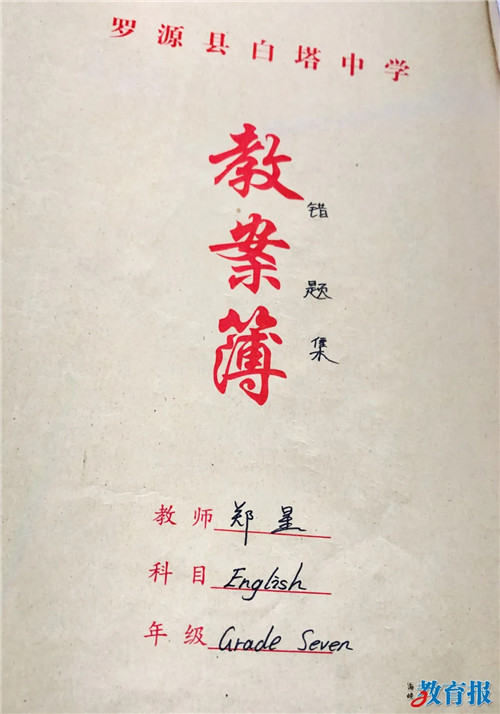 罗源县白塔中学
教案簿
错题集
教师 郑星
科目 English
年级 Grade Seven
海峡教育报